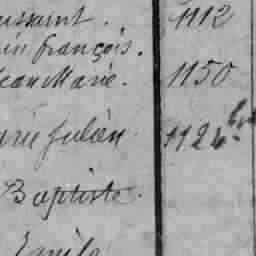 ussaint. 1112
in françois.
Jean Marie. 1150
arie Julien 1124 bis
Baptiste.
Emile